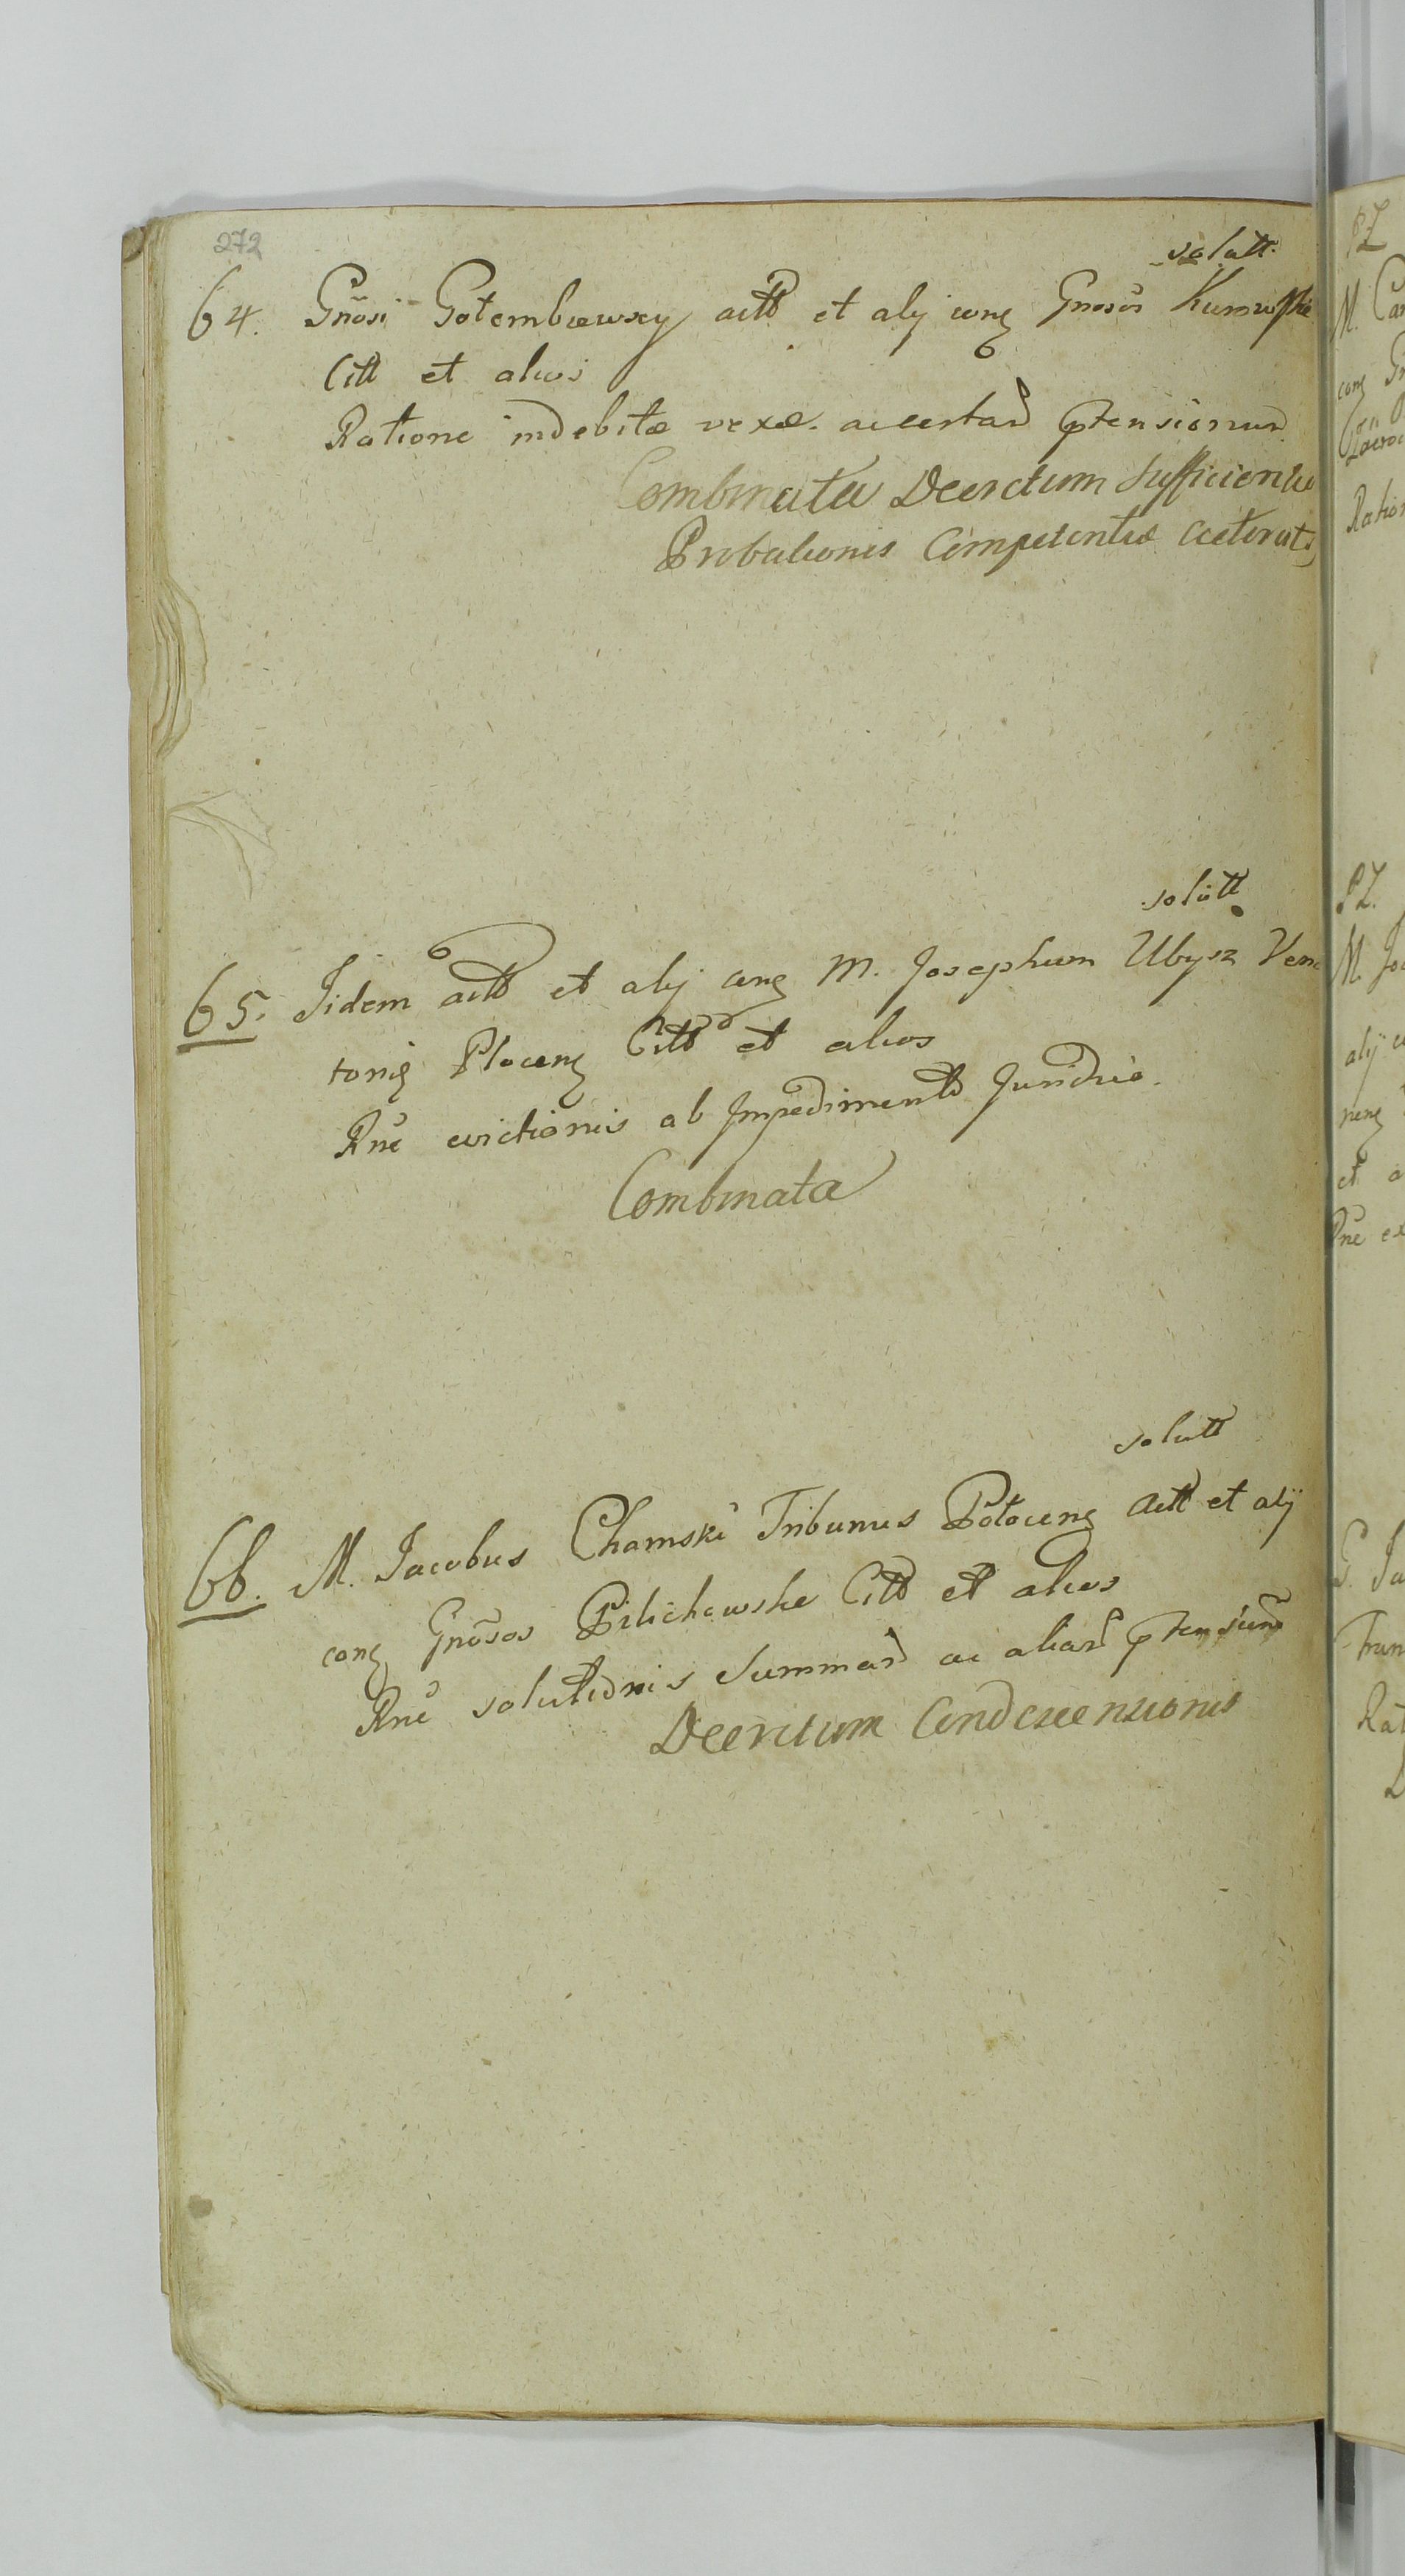 272
solutt.
64. Gnosi Gotembiewscy actt et alij cong Gnosos Kumoskie
Citt et alios
Ratione indebitæ vexæ. ac certar ptensionum
Combinata Decretum Sufficientis
Probationis Competentiæ
solutt
65. Iidem actt et alij cong M. Josephum Ubysz Vena
toris Plocens Citt et alios
Rne evictionis ab Impedimento Juridico.
Combinata
solutt
66. M. Jacobus Chamski Tribunus Plocens Actt et alij
cong Gnosos Pilichowskie Citt et alios
Rne solutionis Summar ac aliar ptensionum
Decretum Condescensionis
PZ
M.
cong
Ratio
PZ.
M.
alij
et
Rne